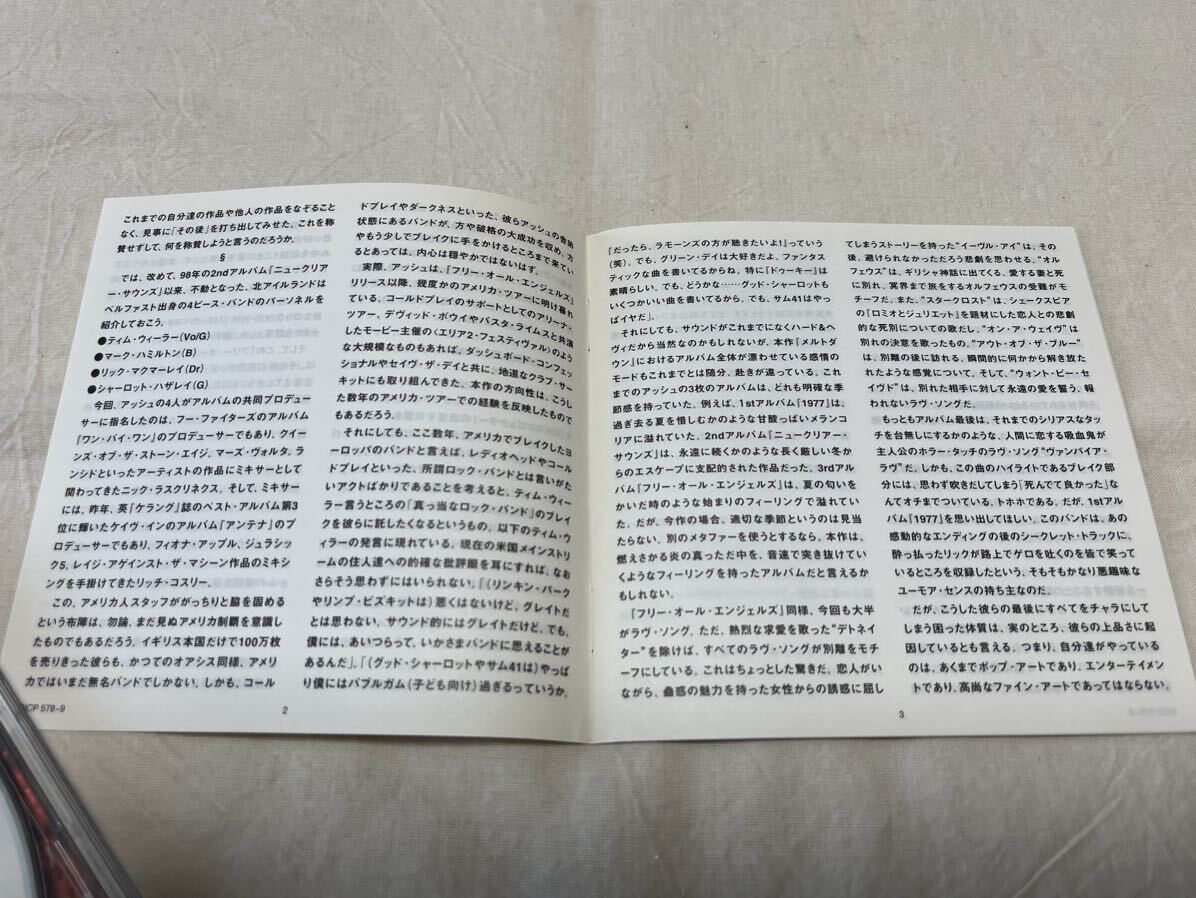 これまでの自分達の作品や他人の作品をなぞること
なく、見事に「その後」を打ち出してみせた。これを称
賛せずして、何を称賛しようと言うのだろうか。
§
では、改めて、98年の2ndアルバム『ニュークリア
ー・サウンズ』以来、不動となった、北アイルランドは
ベルファスト出身の4ピース・バンドのパーソネルを
紹介しておこう。
●ティム・ウィーラー(Vo/G)
●マーク・ハミルトン(B)
●リック・マクマーレイ(Dr)
●シャーロット・ハザレイ(G)
今回、アッシュの4人がアルバムの共同プロデュー
サーに指名したのは、フー・ファイターズのアルバム
『ワン・バイ・ワン』のプロデューサーでもあり、クイー
ンズ・オブ・ザ・ストーン・エイジ、マーズ・ヴォルタ、ラ
ンシドといったアーティストの作品にミキサーとして
関わってきたニック・ラスクリネクス。そして、ミキサー
には、昨年、英『ケラング』誌のベスト・アルバム第3
位に輝いたケイヴ・インのアルバム『アンテナ』のプ
ロデューサーでもあり、フィオナ・アップル、ジュラシッ
ク5、レイジ・アゲインスト・ザ・マシーン作品のミキシ
ングを手掛けてきたリッチ・コスリー。
この、アメリカ人スタッフががっちりと脇を固める
という布陣は、勿論、まだ見ぬアメリカ制覇を意識し
たものでもあるだろう。イギリス本国だけで100万枚
を売りきった彼らも、かつてのオアシス同様、アメリ
カではいまだ無名バンドでしかない。しかも、コール
ドプレイやダークネスといった、彼らアッシュの舎弟
状態にあるバンドが、方や破格の大成功を収め、方
やもう少しでブレイクに手をかけるところまで来てい
るとあっては、内心は穏やかではないはず。
実際、アッシュは、『フリー・オール・エンジェルズ』
リリース以降、幾度かのアメリカ・ツアーに明け暮れ
ている。コールドプレイのサポートとしてのアリーナ・
ツアー、デヴィッド・ボウイやバスタ・ライムスと共演
したモービー主催の〈エリア2・フェスティヴァル〉のよう
な大規模なものもあれば、ダッシュボード・コンフェッ
ショナルやセイヴ・ザ・デイと共に、地道なクラブ・サー
キットにも取り組んできた。本作の方向性は、こうし
た数年のアメリカ・ツアーでの経験を反映したもので
もあるだろう。
それにしても、ここ数年、アメリカでブレイクしたヨ
ーロッパのバンドと言えば、レディオヘッドやコール
ドプレイといった、所謂ロック・バンドとは言いがた
いアクトばかりであることを考えると、ティム・ウィー
ラー言うところの「真っ当なロック・バンド」のブレイ
クを彼らに託したくなるというもの。以下のティム・ウ
ィラーの発言に現れている。現在の米国メインストリ
ームの住人達への的確な批評眼を耳にすれば、なお
さらそう思わずにはいられない。「(リンキン・パーク
やリンプ・ビズキットは)悪くはないけど、グレイトだ
とは思わない。サウンド的にはグレイトだけど、でも、
僕には、あいつらって、いかさまバンドに思えることが
あるんだ」、「(グッド・シャーロットやサム41は)やっぱ
り僕にはバブルガム(子ども向け)過ぎるっていうか。
NCP 578-9
2
「だったら、ラモーンズの方が聴きたいよ!」っていう
(笑)。でも、グリーン・デイは大好きだよ。ファンタス
ティックな曲を書いてるからね。特に『ドゥーキー』は
素晴らしい。でも、どうかな……グッド・シャーロットも
いくつかいい曲を書いてるから。でも、サム41はやっ
ぱイヤだ」。
それにしても、サウンドがこれまでになくハード&ヘ
ヴィだから当然なのかもしれないが、本作『メルトダ
ウン』におけるアルバム全体が漂わせている感情の
モードもこれまでとは随分、赴きが違っている。これ
までのアッシュの3枚のアルバムは、どれも明確な季
節感を持っていた。例えば、1stアルバム『1977』は、
過ぎ去る夏を惜しむかのような甘酸っぱいメランコ
リアに溢れていた。2ndアルバム『ニュークリアー・
サウンズ』は、永遠に続くかのような長く厳しい冬か
らのエスケープに支配された作品だった。3rdアル
バム『フリー・オール・エンジェルズ』は、夏の匂いを
かいだ時のような始まりのフィーリングで溢れてい
た。だが、今作の場合、適切な季節というのは見当
たらない。別のメタファーを使うとするなら、本作は、
燃えさかる炎の真っただ中を、音速で突き抜けてい
くようなフィーリングを持ったアルバムだと言えるか
もしれない。
『フリー・オール・エンジェルズ』同様、今回も大半
がラヴ・ソング。ただ、熱烈な求愛を歌った“デトネイ
ター”を除けば、すべてのラヴ・ソングが別離をモチ
ーフにしている。これはちょっとした驚きだ。恋人がい
ながら、蠱惑の魅力を持った女性からの誘惑に屈し
てしまうストーリーを持った“イーヴル・アイ”は、その
後、避けられなかっただろう悲劇を思わせる。“オル
フェウス”は、ギリシャ神話に出てくる、愛する妻と死
に別れ、冥界まで旅をするオルフェウスの受難がモ
チーフだ。また、“スタークロスト”は、シェークスピア
の『ロミオとジュリエット』を題材にした恋人との悲劇
的な死別についての歌だし、“オン・ア・ウェイヴ”は
別れの決意を歌ったもの。“アウト・オブ・ザ・ブルー”
は、別離の後に訪れる、瞬間的に何かから解き放た
れたような感覚について。そして、“ウォント・ビー・セ
イヴド”は、別れた相手に対して永遠の愛を誓う、報
われないラヴ・ソングだ。
もっともアルバム最後は、それまでのシリアスなタッ
チを台無しにするかのような、人間に恋する吸血鬼が
主人公のホラー・タッチのラヴ・ソング“ヴァンパイア・
ラヴ”だ。しかも、この曲のハイライトであるブレイク部
分には、思わず吹きだしてしまう「死んでて良かった」な
んてオチまでついている。トホホである。だが、1stアル
バム『1977』を思い出してほしい。このバンドは、あの
感動的なエンディングの後のシークレット・トラックに、
酔っ払ったリックが路上でゲロを吐くのを皆で笑って
いるところを収録したという、そもそもかなり悪趣味な
ユーモア・センスの持ち主なのだ。
だが、こうした彼らの最後にすべてをチャラにして
しまう困った体質は、実のところ、彼らの上品さに起
因しているとも言える。つまり、自分達がやっている
のは、あくまでポップ・アートであり、エンターテイメン
トであり、高尚なファイン・アートであってはならない。
3